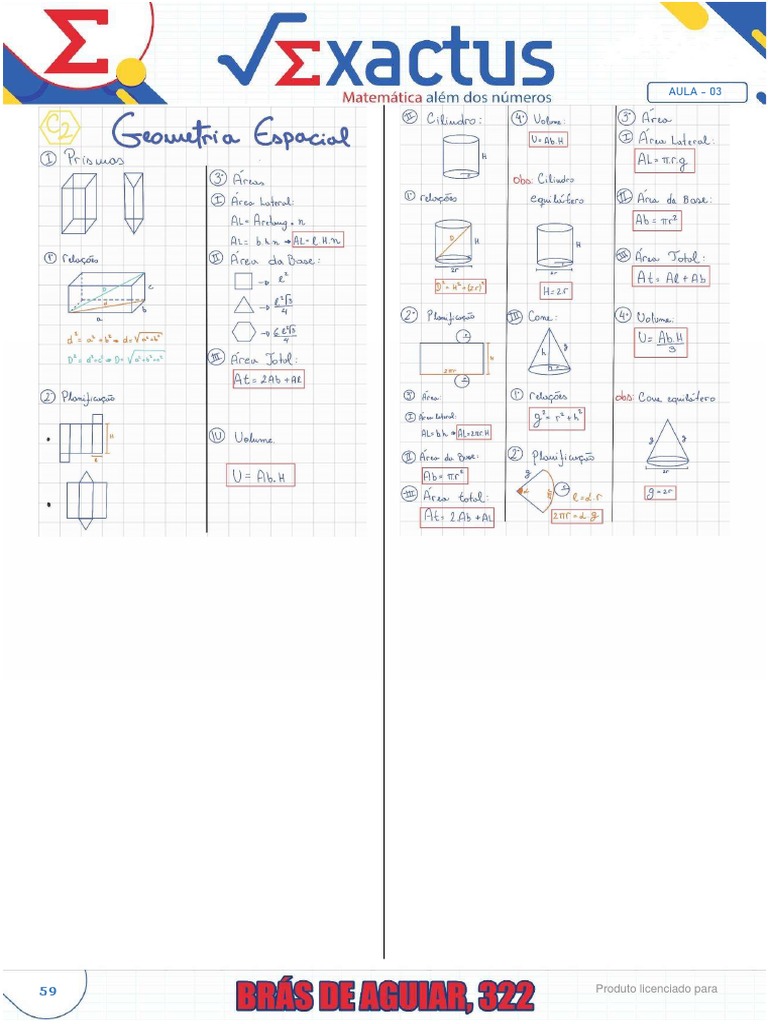 √Exactus
Matemática além dos números
AULA - 03
C2
Geometria Espacial
I Prismas
1º relações
D
d
a
b
c
d² = a² + b² → d = √a² + b²
D² = d² + c² → D = √a² + b² + c²
2º Planificação
H
l
3º Áreas
I Área Lateral:
AL = Aretâng. n
AL = b.h.n → AL = l.H.n
II Área da Base:
→ l²
→ l²√3/4
→ 6l²√3/4
III Área Total:
At = 2Ab + AL
IV Volume
V = Ab.H
II Cilindro:
H
r
1º relações
D
H
2r
D² = H² + (2r)²
2º Planificação
r
h
2πr
r
3º Área:
I Área lateral:
AL = b.h → AL = 2πr.H
II Área da Base:
Ab = πr²
III Área total:
At = 2.Ab + AL
4º Volume:
V = Ab.H
obs: Cilindro
equilátero
H
2r
H = 2r
III Cone:
h
g
r
1º relações
g² = r² + h²
2º Planificação
g
α
2πr
r
l = α.r
2πr = α.g
3º Área
I Área Lateral:
AL = π.r.g
II Área da Base:
Ab = πr²
III Área Total:
At = Al + Ab
4º Volume:
V = Ab.H/3
obs: Cone equilátero
g
g
2r
g = 2r
59
BRÁS DE AGUIAR, 322
Produto licenciado para